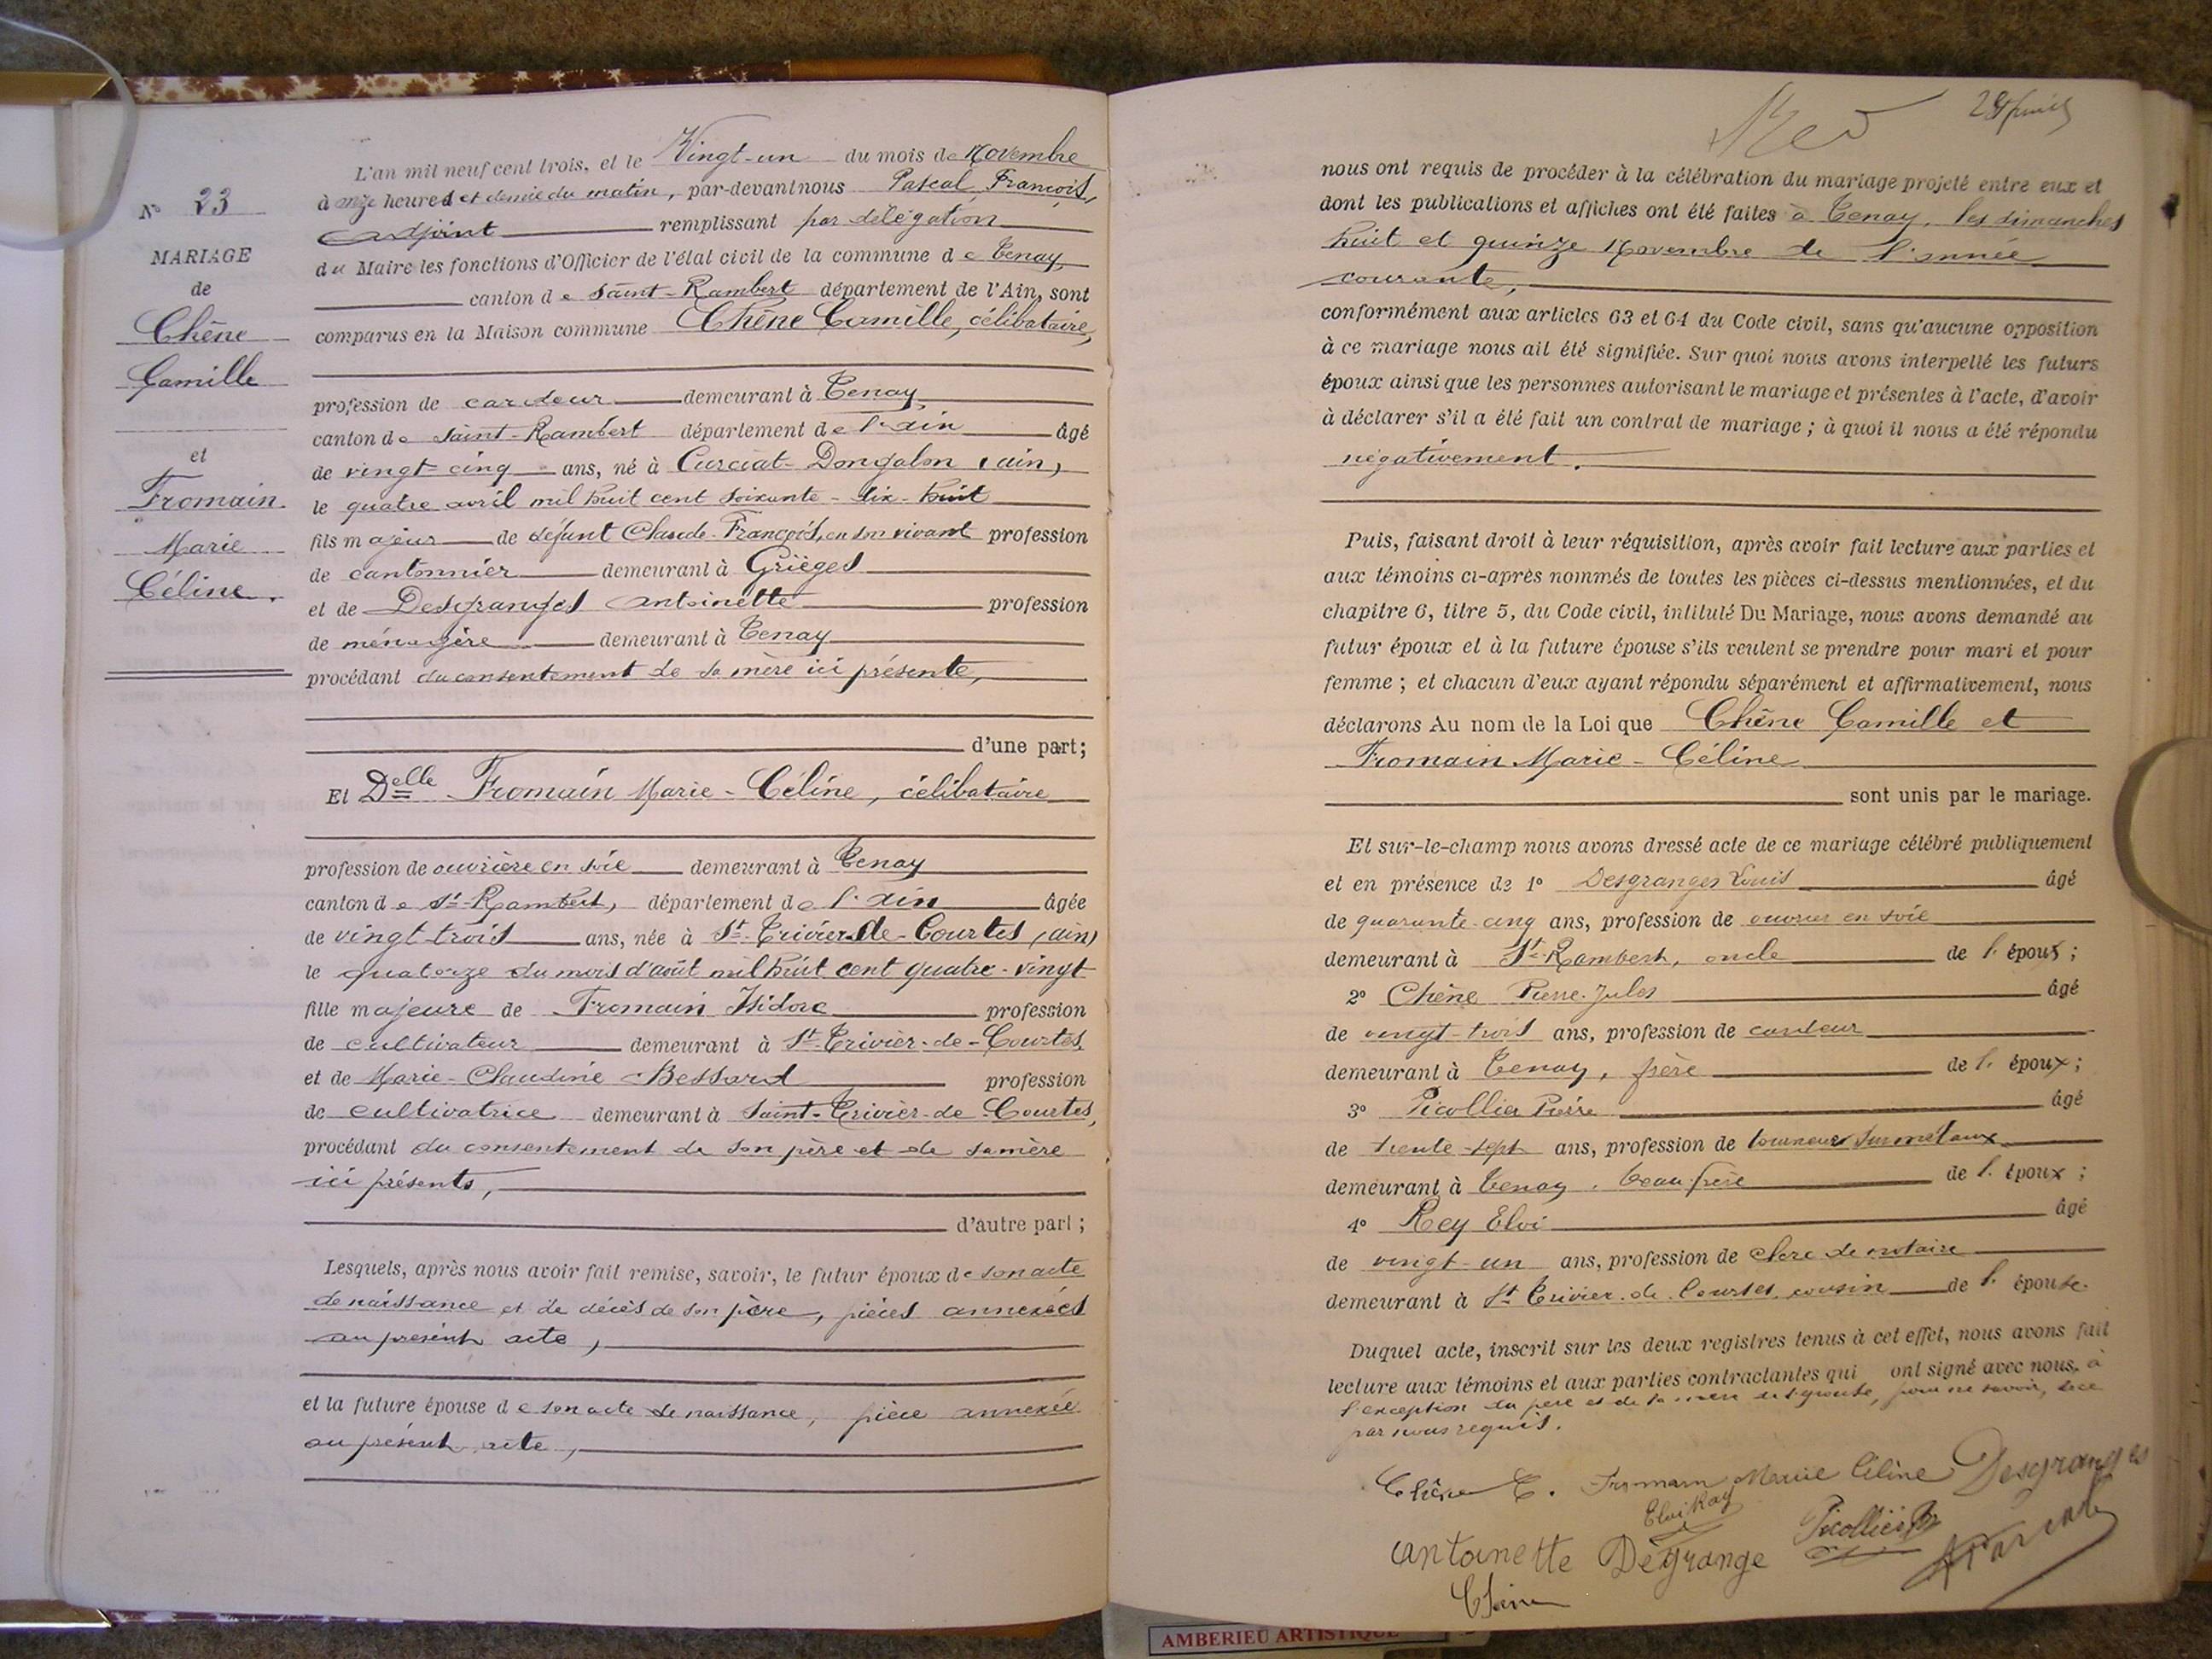 N° 23
MARIAGE
de
Chêne
Camille
et
Fromain
Marie
Céline.
L'an mil neuf cent trois, et le Vingt-un du mois de Novembre
à onze heures et demie du matin, par-devant nous Pascal François,
adjoint remplissant par délégation
du Maire les fonctions d'Officier de l'état civil de la commune de Tenay,
canton de Saint-Rambert département de l'Ain, sont
comparus en la Maison commune Chêne Camille, célibataire,
profession de cardeur demeurant à Tenay,
canton de Saint-Rambert département de l'Ain âgé
de vingt-cinq ans, né à Curciat-Dongalon (Ain)
le quatre avril mil huit cent soixante-dix-huit
fils majeur de défunt Claude-François, en son vivant profession
de cantonnier demeurant à Grièges
et de Desgranges Antoinette profession
de ménagère demeurant à Tenay
procédant du consentement de sa mère ici présente,
d'une part;
Et Delle Fromain Marie-Céline, célibataire
profession de ouvrière en soie demeurant à Tenay
canton de St-Rambert, département de l'Ain âgée
de vingt-trois ans, née à St-Trivier-de-Courtes (Ain)
le quatorze du mois d'août mil huit cent quatre-vingt
fille majeure de Fromain Isidore profession
de cultivateur demeurant à St-Trivier-de-Courtes,
et de Marie-Claudine Bessard profession
de cultivatrice demeurant à Saint-Trivier-de-Courtes,
procédant du consentement de son père et de sa mère
ici présents,
d'autre part;
Lesquels, après nous avoir fait remise, savoir, le futur époux de son acte
de naissance et de décès de son père, pièces annexées
au présent acte,
et la future épouse de son acte de naissance, pièce annexée
au présent acte,
nous ont requis de procéder à la célébration du mariage projeté entre eux et
dont les publications et affiches ont été faites à Tenay, les dimanches
huit et quinze Novembre de l'année
courante,
conformément aux articles 63 et 64 du Code civil, sans qu'aucune opposition
à ce mariage nous ait été signifiée. Sur quoi nous avons interpellé les futurs
époux ainsi que les personnes autorisant le mariage et présentes à l'acte, d'avoir
à déclarer s'il a été fait un contrat de mariage; à quoi il nous a été répondu
négativement.
Puis, faisant droit à leur réquisition, après avoir fait lecture aux parties et
aux témoins ci-après nommés de toutes les pièces ci-dessus mentionnées, et du
chapitre 6, titre 5, du Code civil, intitulé Du Mariage, nous avons demandé au
futur époux et à la future épouse s'ils veulent se prendre pour mari et pour
femme; et chacun d'eux ayant répondu séparément et affirmativement, nous
déclarons Au nom de la Loi que Chêne Camille et
Fromain Marie-Céline
sont unis par le mariage.
Et sur-le-champ nous avons dressé acte de ce mariage célébré publiquement
et en présence de 1° Desgranges Louis âgé
de quarante-cinq ans, profession de ouvrier en soie
demeurant à St-Rambert, oncle de l'époux;
2° Chêne Pierre-Jules âgé
de vingt-trois ans, profession de cardeur
demeurant à Tenay, frère de l'époux;
3° Picollier Pierre âgé
de trente-sept ans, profession de tourneur sur métaux
demeurant à Tenay, beau-frère de l'époux;
4° Rey Eloi âgé
de vingt-un ans, profession de clerc de notaire
demeurant à St Trivier-de-Courtes, cousin de l'épouse.
Duquel acte, inscrit sur les deux registres tenus à cet effet, nous avons fait
lecture aux témoins et aux parties contractantes qui ont signé avec nous, à
l'exception du père et de la mère de l'épouse, pour ne savoir, de ce
par nous requis.
Chêne C. Fromain Marie Céline Desgranges
Eloi Rey
Antoinette Degrange Picollier P. Pascal
Chêne
AMBERIEU ARTISTIQUE